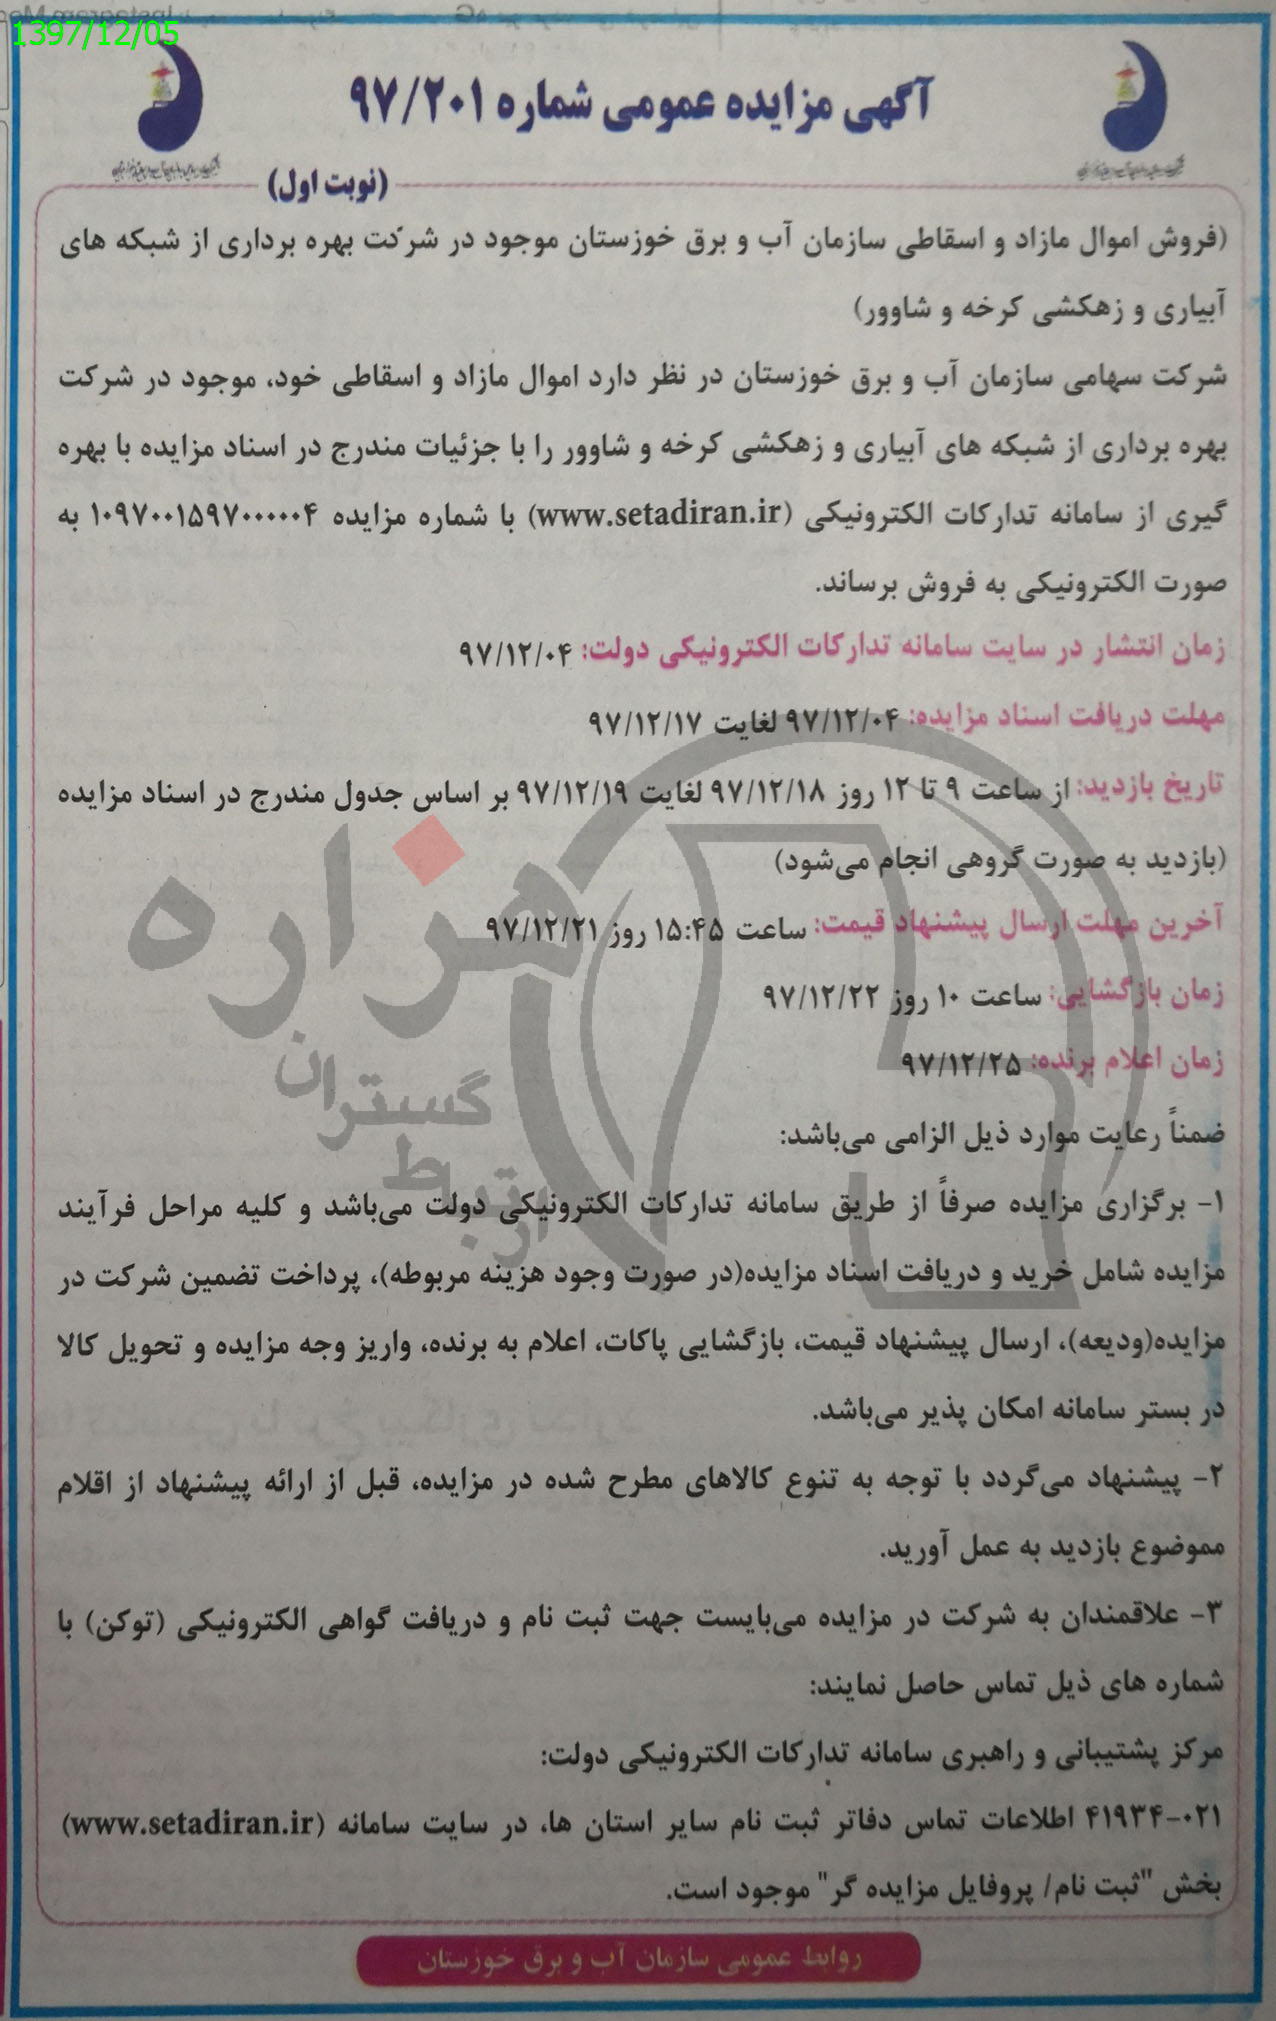 1397/12/05
آگهی مزایده عمومی شماره ۹۷/۲۰۱
(نوبت اول)
(فروش اموال مازاد و اسقاطی سازمان آب و برق خوزستان موجود در شرکت بهره برداری از شبکه های
آبیاری و زهکشی کرخه و شاوور)
شرکت سهامی سازمان آب و برق خوزستان در نظر دارد اموال مازاد و اسقاطی خود، موجود در شرکت
بهره برداری از شبکه های آبیاری و زهکشی کرخه و شاوور را با جزئیات مندرج در اسناد مزایده با بهره
گیری از سامانه تدارکات الکترونیکی (www.setadiran.ir) با شماره مزایده ۱۰۹۷۰۰۱۵۹۷۰۰۰۰۰۴ به
صورت الکترونیکی به فروش برساند.
زمان انتشار در سایت سامانه تدارکات الکترونیکی دولت: ۹۷/۱۲/۰۴
مهلت دریافت اسناد مزایده: ۹۷/۱۲/۰۴ لغایت ۹۷/۱۲/۱۷
تاریخ بازدید: از ساعت ۹ تا ۱۲ روز ۹۷/۱۲/۱۸ لغایت ۹۷/۱۲/۱۹ بر اساس جدول مندرج در اسناد مزایده
(بازدید به صورت گروهی انجام می‌شود)
آخرین مهلت ارسال پیشنهاد قیمت: ساعت ۱۵:۴۵ روز ۹۷/۱۲/۲۱
زمان بازگشایی: ساعت ۱۰ روز ۹۷/۱۲/۲۲
زمان اعلام برنده: ۹۷/۱۲/۲۵
ضمناً رعایت موارد ذیل الزامی می‌باشد:
۱- برگزاری مزایده صرفاً از طریق سامانه تدارکات الکترونیکی دولت می‌باشد و کلیه مراحل فرآیند
مزایده شامل خرید و دریافت اسناد مزایده(در صورت وجود هزینه مربوطه)، پرداخت تضمین شرکت در
مزایده(ودیعه)، ارسال پیشنهاد قیمت، بازگشایی پاکات، اعلام به برنده، واریز وجه مزایده و تحویل کالا
در بستر سامانه امکان پذیر می‌باشد.
۲- پیشنهاد می‌گردد با توجه به تنوع کالاهای مطرح شده در مزایده، قبل از ارائه پیشنهاد از اقلام
مموضوع بازدید به عمل آورید.
۳- علاقمندان به شرکت در مزایده می‌بایست جهت ثبت نام و دریافت گواهی الکترونیکی (توکن) با
شماره های ذیل تماس حاصل نمایند:
مرکز پشتیبانی و راهبری سامانه تدارکات الکترونیکی دولت:
۰۲۱-۴۱۹۳۴ اطلاعات تماس دفاتر ثبت نام سایر استان ها، در سایت سامانه (www.setadiran.ir)
بخش "ثبت نام/ پروفایل مزایده گر" موجود است.
روابط عمومی سازمان آب و برق خوزستان
هزاره
گستران
مرتبط